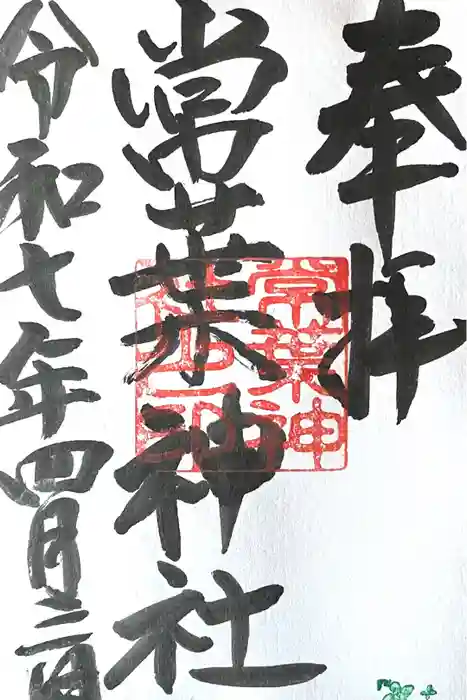 奉拝
常葉神社
常葉神社之印
令和七年四月二日